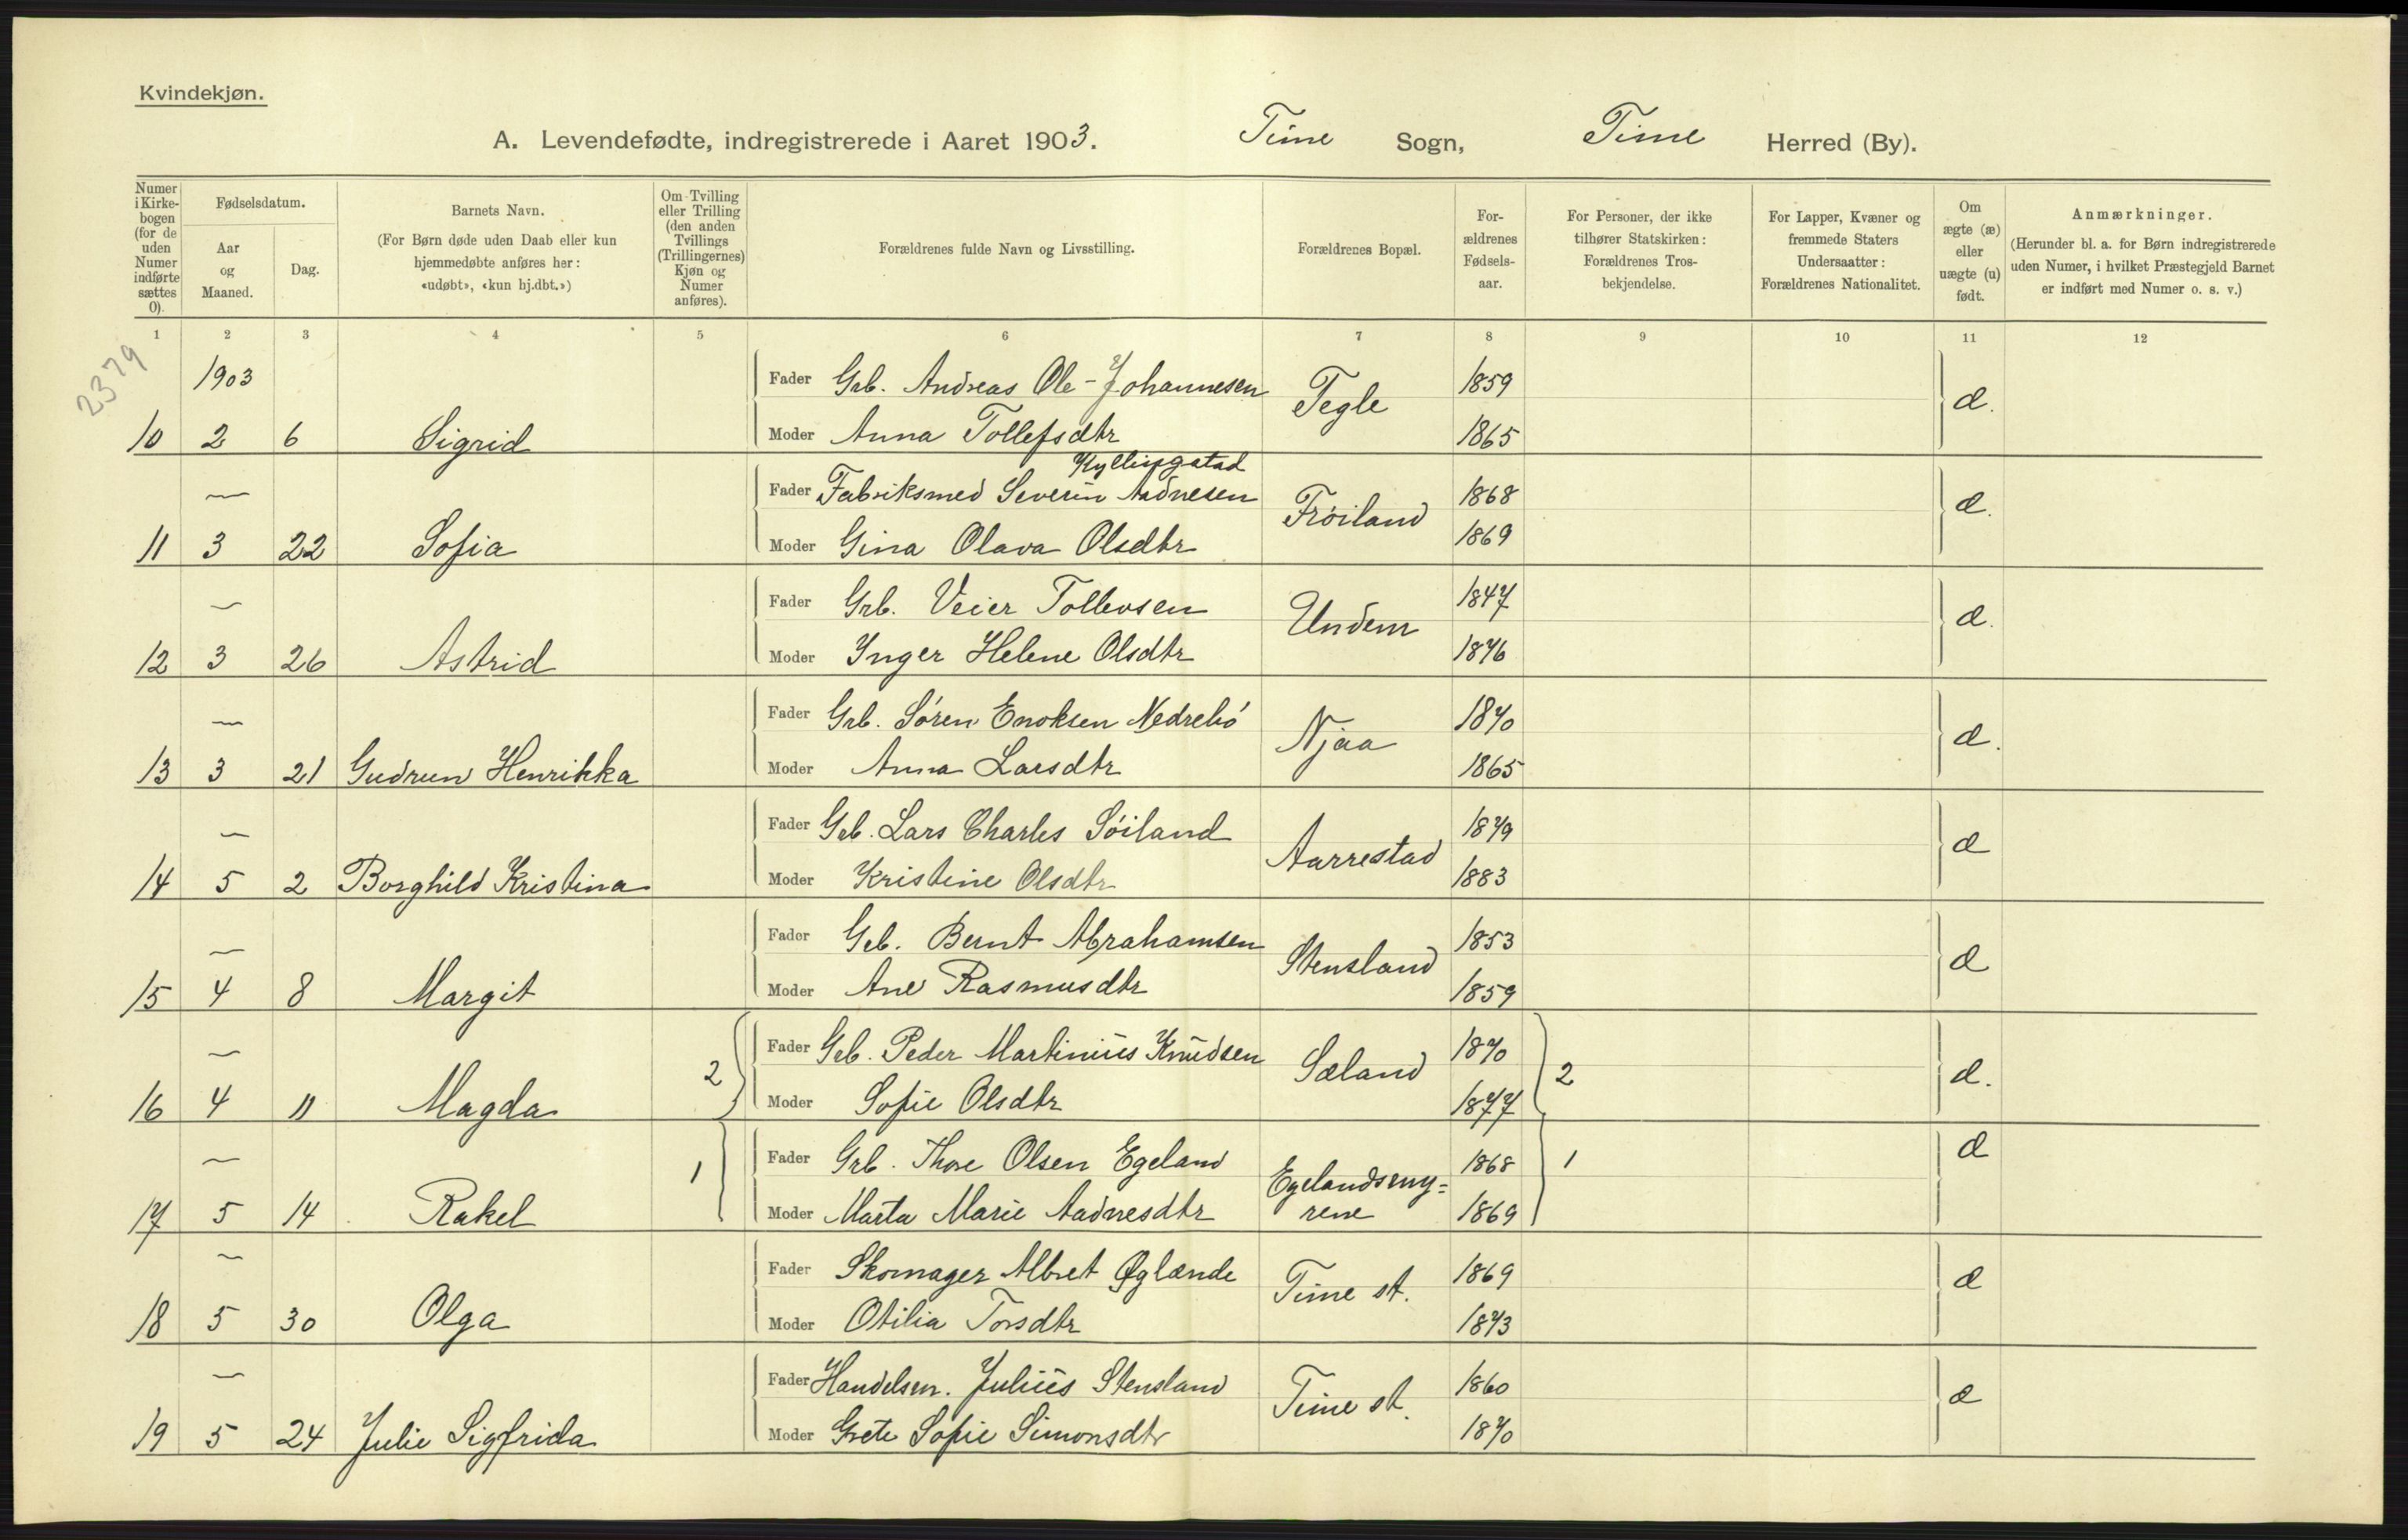 Kvindekjøn.
A. Levendefødte, indregistrerede i Aaret 1903. Time Sogn, Time Herred (By).
Numer i Kirkebogen (for de uden Numer indførte sættes 0).
Fødselsdatum.
Aar og Maaned.
Dag.
Barnets Navn.
(For Børn døde uden Daab eller kun hjemmedøbte anføres her: «udøbt», «kun hj.dbt.»)
Om Tvilling eller Trilling (den anden Tvillings (Trillingernes) Kjøn og Numer anføres).
Forældrenes fulde Navn og Livsstilling.
Forældrenes Bopæl.
Forældrenes Fødselsaar.
For Personer, der ikke tilhører Statskirken: Forældrenes Trosbekjendelse.
For Lapper, Kvæner og fremmede Staters Undersaatter: Forældrenes Nationalitet.
Om ægte (æ) eller uægte (u) født.
Anmærkninger.
(Herunder bl. a. for Børn indregistrerede uden Numer, i hvilket Præstegjeld Barnet er indført med Numer o. s. v.)
1 2 3 4 5 6 7 8 9 10 11 12
2379
1903 Fader Grb. Andreas Ole-Johannesen Tegle 1859 æ.
10 2 6 Sigrid Moder Anna Tollefsdtr 1865
Kyllingstad
— Fader Fabriksmed Severin Aadnesen Frøiland 1868 æ.
11 3 22 Sofia Moder Gina Olava Olsdtr 1869
— Fader Grb. Veier Tollevsen Undem 1847 æ.
12 3 26 Astrid Moder Inger Helene Olsdtr 1876
— Fader Grb. Søren Enoksen Nedrebø Njaa 1870 æ.
13 3 21 Gudrun Henrikka Moder Anna Larsdtr 1865
— Fader Grb. Lars Charles Søiland Aarrestad 1879 æ
14 5 2 Borghild Kristina Moder Kristine Olsdtr 1883
— Fader Grb. Bernt Abrahamsen Stensland 1853 æ
15 4 8 Margit Moder Ane Rasmusdtr 1859
— 2 Fader Grb. Peder Martinius Knudsen Sæland 1870 2 æ.
16 4 11 Magda Moder Sofie Olsdtr 1877
— 1 Fader Grb. Thore Olsen Egeland Egelandsmy= 1868 1 æ
17 5 14 Rakel Moder Marta Marie Aadnesdtr rene 1869
— Fader Skomager Albret Øglænde Time st. 1869 æ
18 5 30 Olga Moder Otilia Torsdtr 1873
— Fader Handelsm. Julius Stensland Time st. 1860 æ
19 5 24 Julie Sigfrida Moder Grete Sofie Simonsdtr 1870